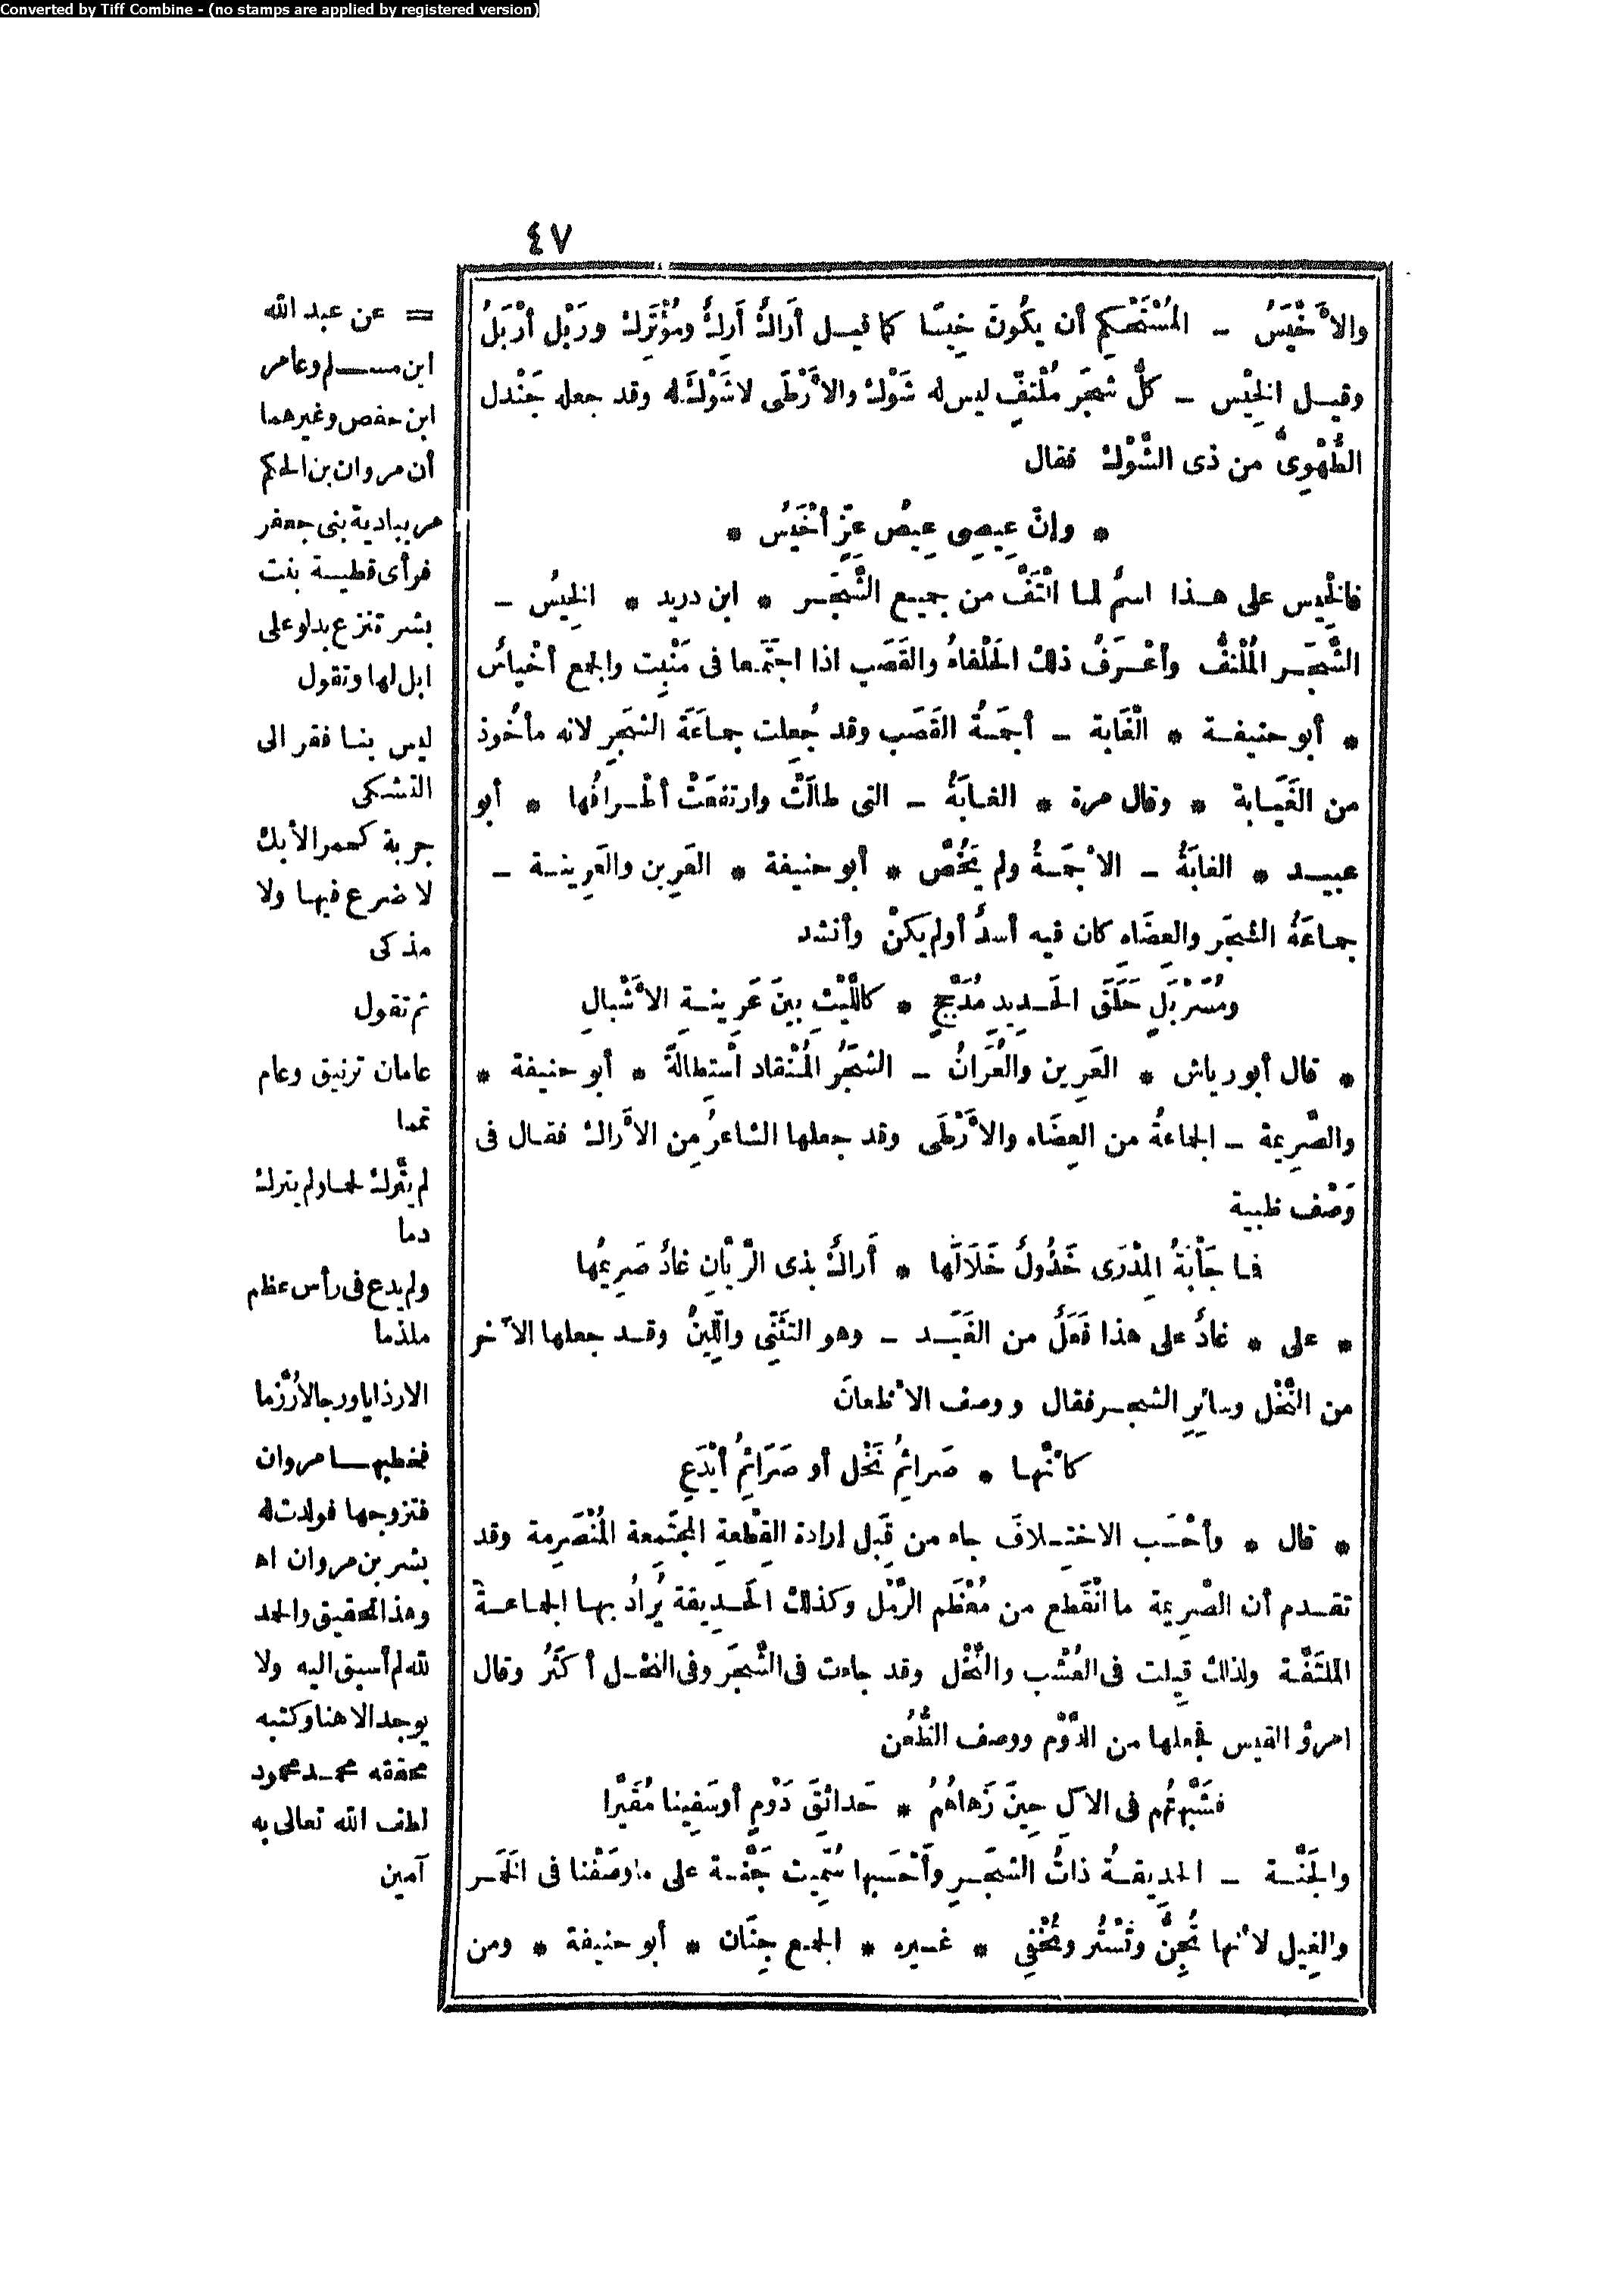 Converted by Tiff Combine - (no stamps are applied by registered version)
٤٧
والأَخْيَسُ - المُسْتَحْكِم أن يكُونَ خِيسًا كما قيل أَراكٌ أَرِكٌ ومُؤْتَرِك ورَبْل أَرْبَلُ
وقيل الخِيْس - كلُّ شجَر مُلْتفّ ليس له شَوْك والأَرْطَى لا شَوْكَ له وقد جعله جَنْدل
الطُّهَوِىُّ من ذى الشَّوْك فقال
* وإنّ عِيصِى عِيصُ عِزٍّ أَخْيَسُ *
فالخِيس على هذا اسمٌ لما الْتَفَّ من جميع الشَّجَر * ابن دريد * الخِيْسُ -
الشَّجَر المُلْتفُّ وأعْرَفُ ذلك الحَلْفاءُ والقَصَب اذا اجتَمَعا فى مَنْبِت والجمع أخْياسُ
* أبو حنيفة * الغَابة - أجَمةُ القَصَب وقد جُعِلت جماعَةَ الشجَر لانه مأخُوذ
من الغَيَابة * وقال مرة * الغابَةُ - التى طالَتْ وارتفعَتْ أطْرافُها * أبو
عبيد * الغابَةُ - الأَجَمةُ ولم يَخُصّ * أبو حنيفة * العَرِين والعَرِينة -
جماعَةُ الشجَر والعِضَاهِ كان فيه أسدٌ أولم يَكنْ وأنشد
ومُسَرْبَلٍ حَلَقَ الحَديدِ مُدَجَّجٍ * كاللَّيْثِ بينَ عَرِينةِ الأَشْبالِ
* قال أبو رياش * العَرِين والعُرَانُ - الشجَرُ المُنْقاد أسْتِطالةً * أبو حنيفة *
والصَّرِيمة - الجماعةُ من العِضَاه والأَرْطَى وقد جعلها الشاعرُ مِن الأَراك فقال فى
وَصْف ظبية
فما جَأْبَةُ المِدْرَى خَذُولٌ خَلَالَها * أَراكٌ بذى الرَّيّانِ غادٌ صَرِيمُها
* على * غادٌ على هذا فَعَلٌ من الغَيَد - وهو التثَنِّى واللِّينُ وقد جعلها الآخر
من النَّخْل وسائِرِ الشجر فقال ووصف الأَظعانَ
كأنّها * صَرائمُ نَخْل أو صَرَائِمُ أَيْدَعِ
* قال * وأحْسَب الاختلافَ جاء من قِبَل إرادة القِطْعةِ المجتَمِعة المُنْصَرِمة وقد
تقدم أن الصَّرِيمة ما انْقَطع من مُعْظَم الرَّمْل وكذلك الحَديقة يُرادُ بها الجماعة
الملتَفَّة ولذلك قِيلت فى العُشْب والنَّخْل وقد جاءت فى الشَّجَر وفى النخل أكثَرُ وقال
امرؤ القيس فجعلها من الدَّوْم ووصف الظُّعُن
فشَبَّهتُهم فى الآلِ حِينَ زَهاهُمُ * حَدائقَ دَوْمٍ أوسَفِينا مُقَيَّرا
والجَنَّة - الحديقةُ ذاتُ الشجَرِ وأَحْسَبها سُمِّيت جَنَّة على ما وصَفْنا فى الخَمَر
والغِيل لأنها تُجِنُّ وتَسْتُر وتُخْفِى * غيره * الجمع جِنَان * أبو حنيفة * ومن
= عن عبد الله
ابن مسلم وعامر
ابن حفص وغيرهما
أن مروان بن الحكم
مر ببادية بنى جعفر
فرأى قطية بنت
بشر تنزع بدلو على
ابل لها وتقول
ليس بنا فقر الى
التشكى
جربة كحمر الأبك
لا ضرع فيها ولا
مذكى
ثم تقول
عامان ترنيق وعام
تمما
لم يتّرك لحما ولم يترك
دما
ولم يدع فى رأس عظم
ملذما
الا رذايا ورجالا رُزَّما
فخطبها مروان
فتزوجها فولدت له
بشر بن مروان اه
وهذا التحقيق والحمد
لله لم أسبق اليه ولا
يوجد الا هنا وكتبه
محققه محمد محمود
لطف الله تعالى به
آمين